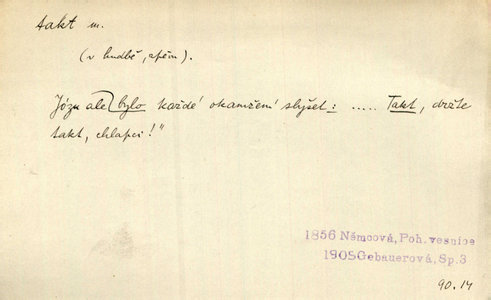 takt m.
(v hudbě, zpěvu).
Józu ale bylo každé okamžení slyšet: ..... Takt, držte
takt, chlapci!"
1856 Němcová, Poh. vesnice
1908 Gebauerová, Sp. 3
90.14